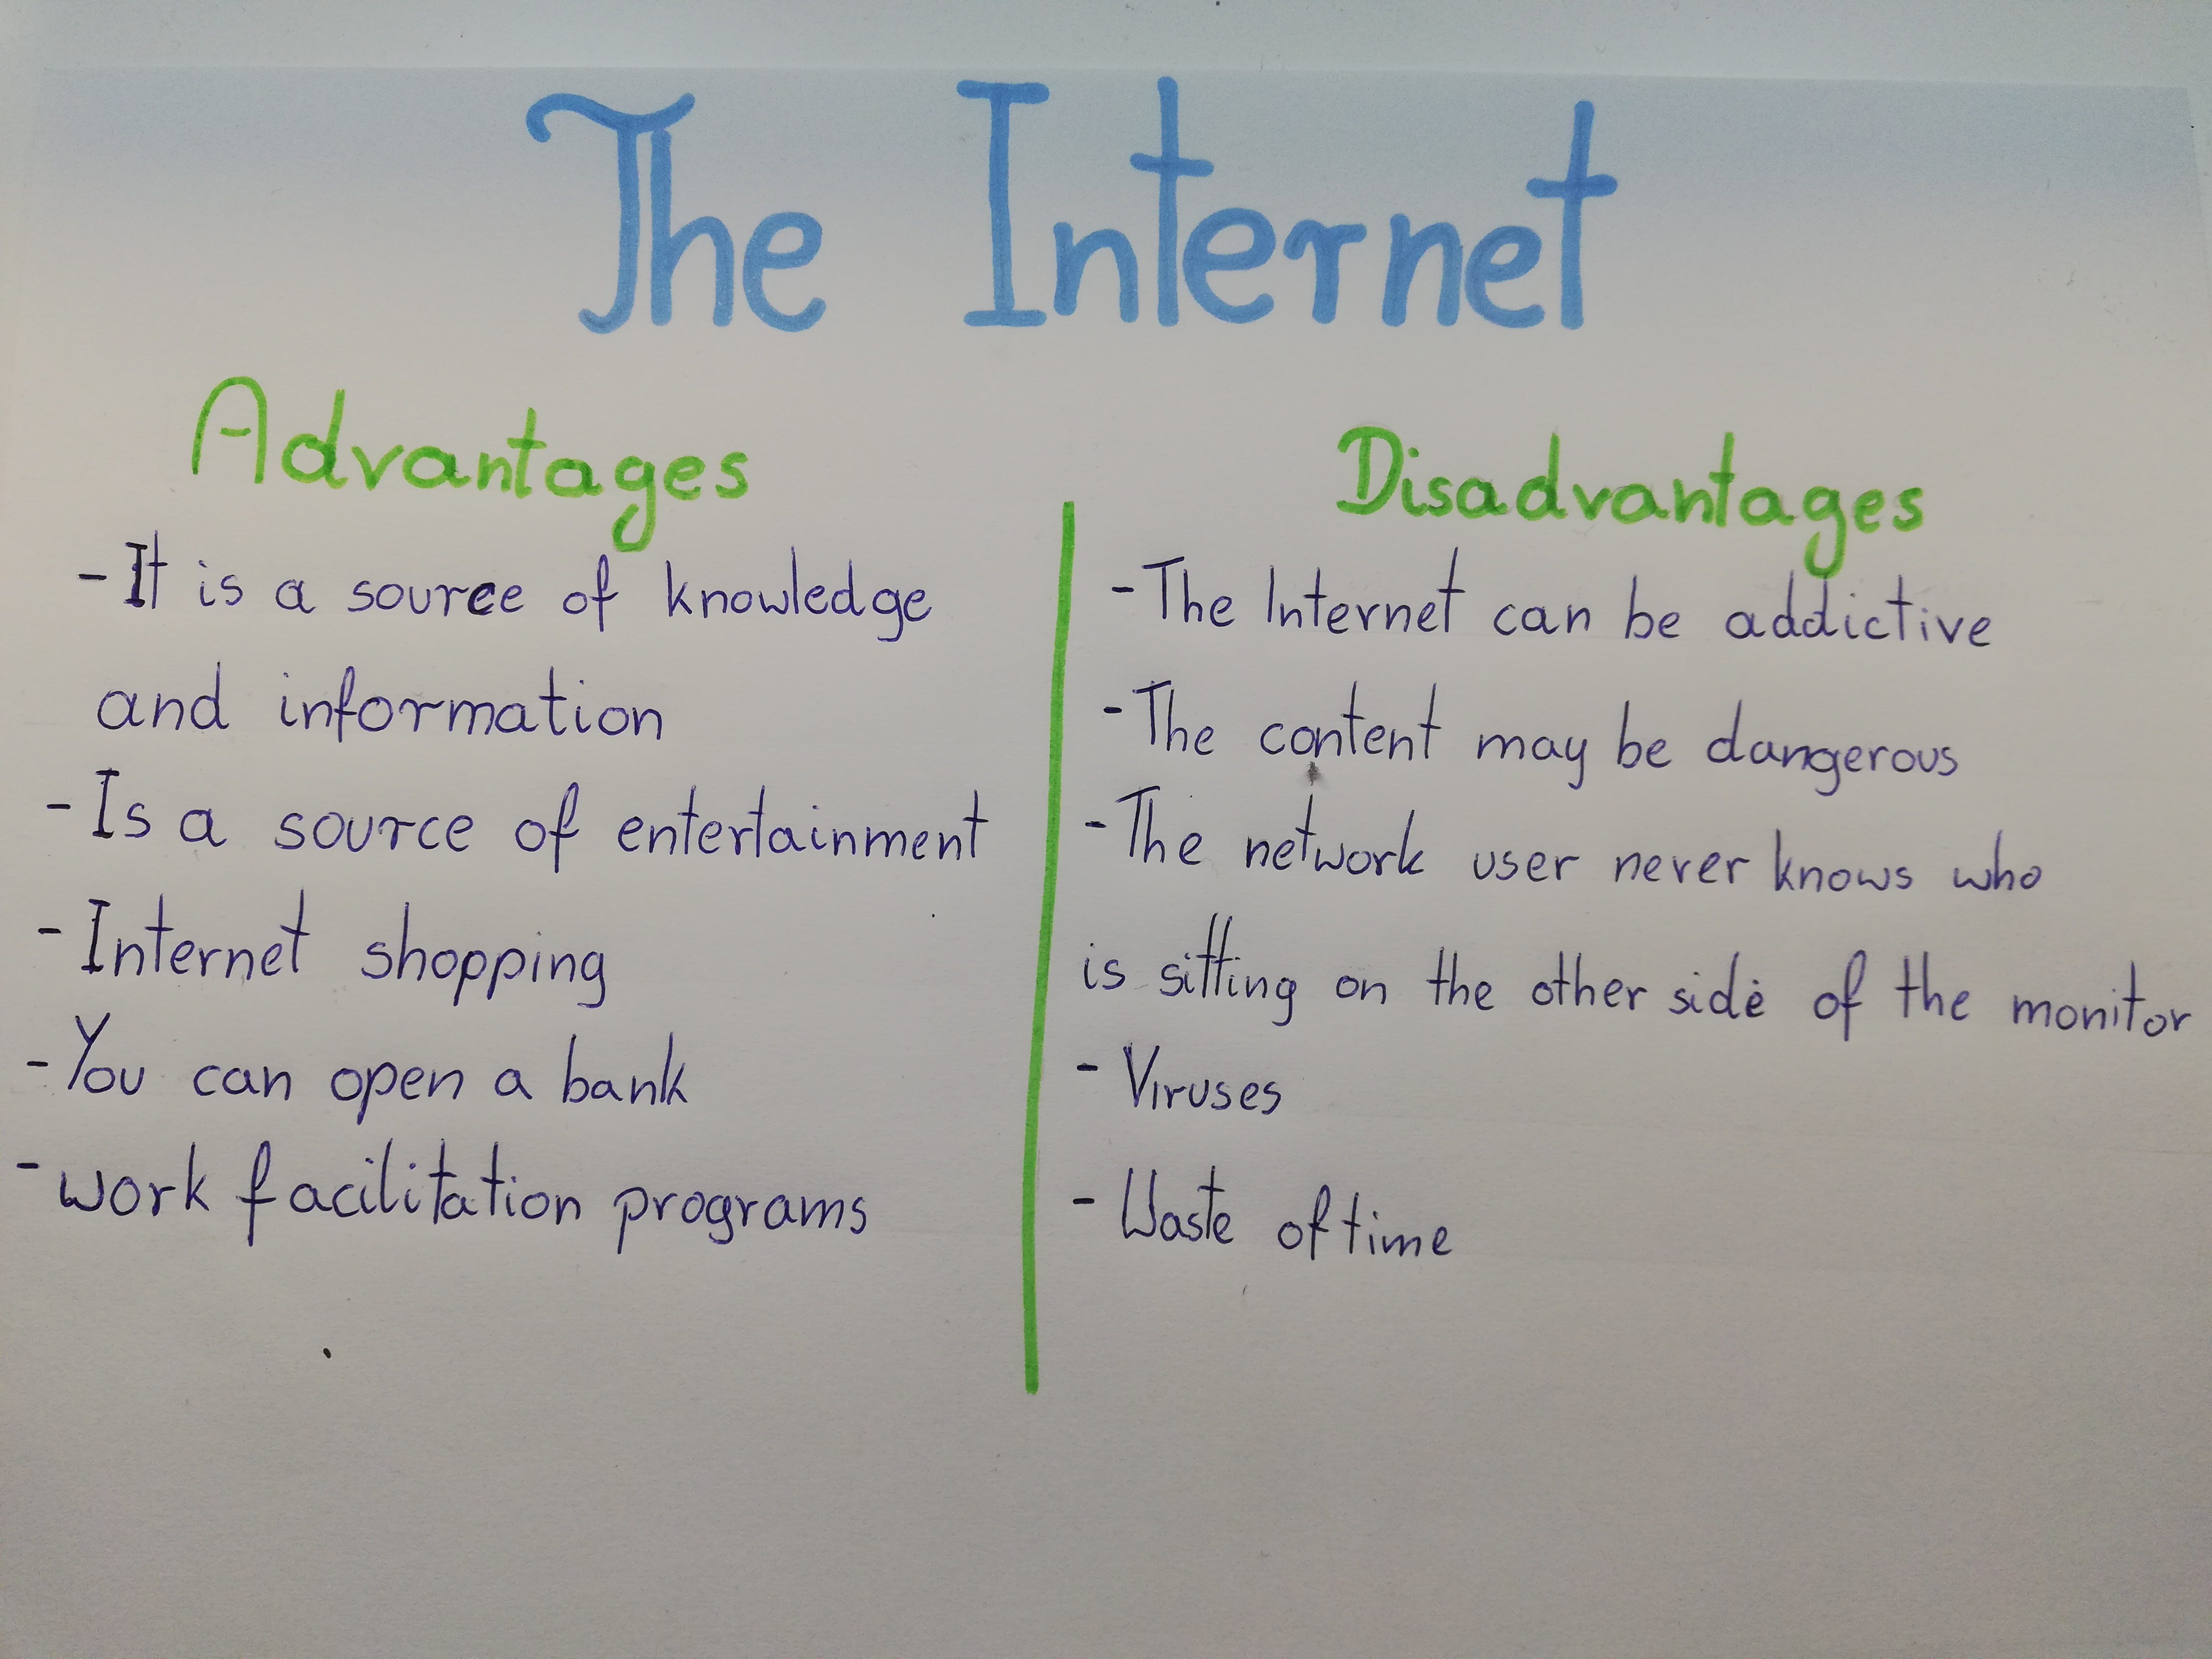 The Internet
Advantages
- It is a source of knowledge
and information
- Is a source of entertainment
- Internet shopping
- You can open a bank
- work facilitation programs
Disadvantages
- The Internet can be addictive
- The content may be dangerous
- The network user never knows who
is sitting on the other side of the monitor
- Viruses
- Waste of time